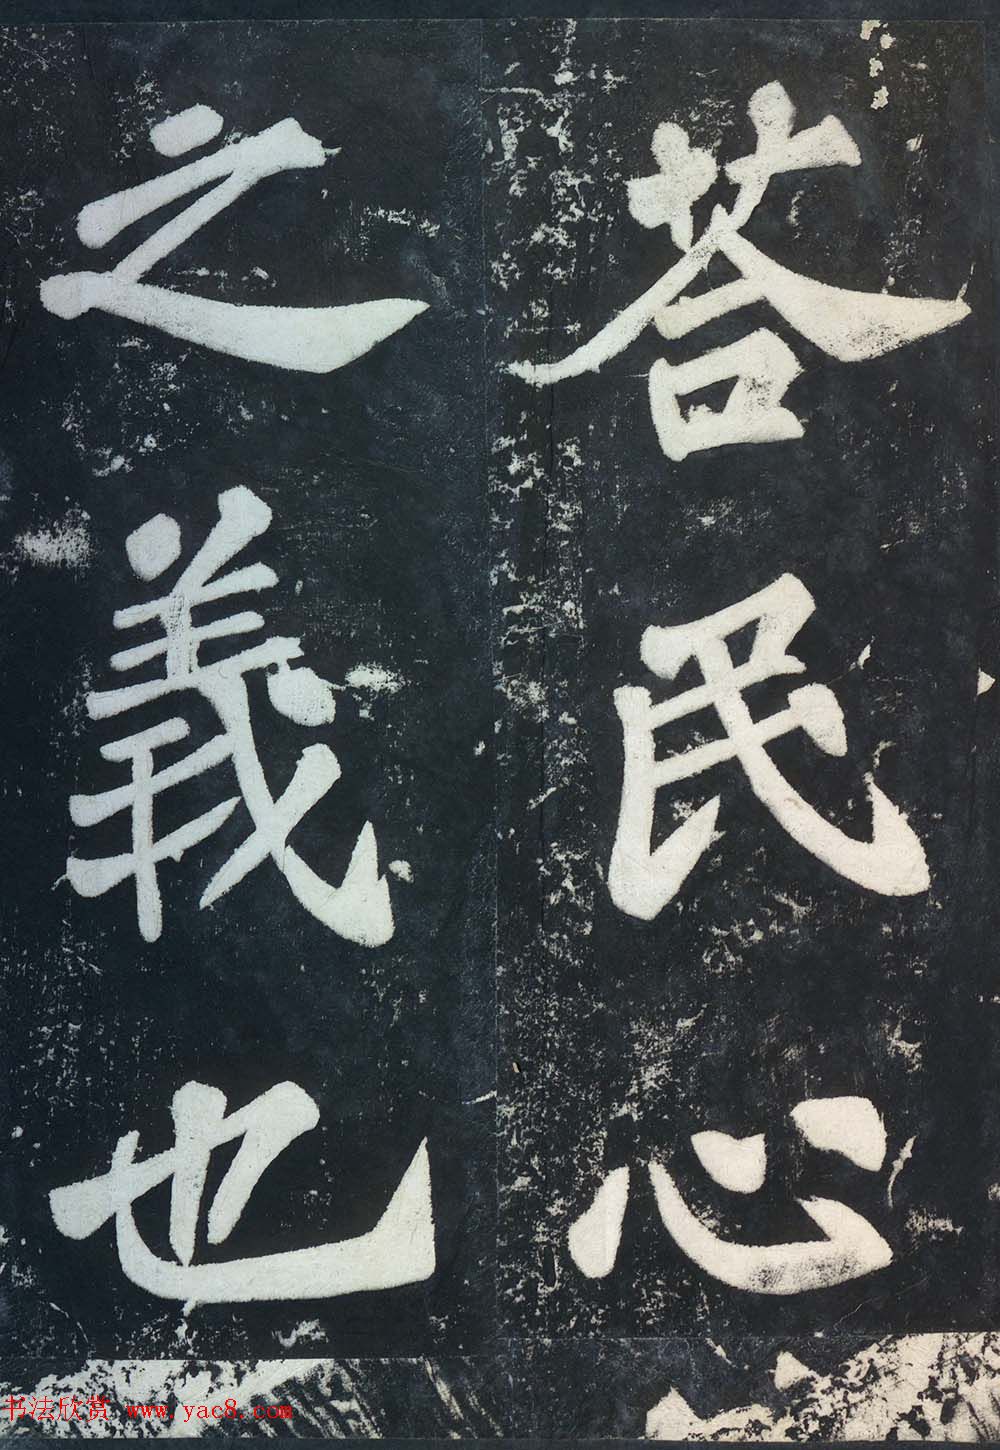 荅民心
之義也
书法欣赏 www.yac8.com